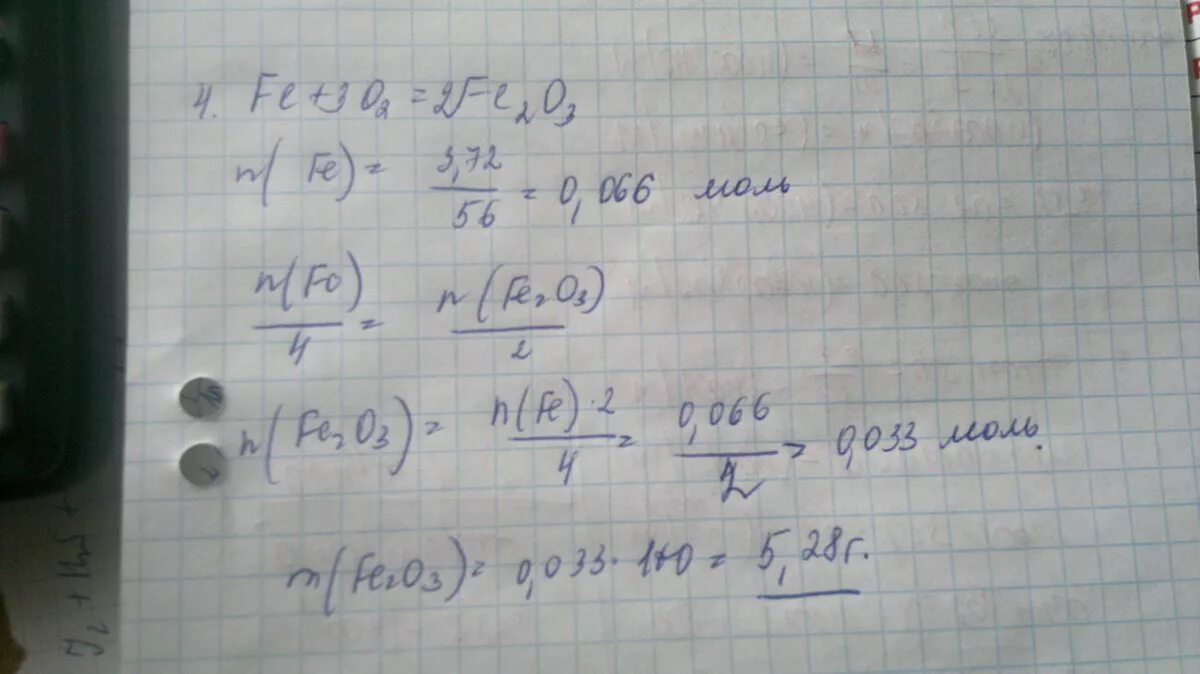 4. Fe + 3O₂ = 2Fe₂O₃
n( Fe) = 3,72/56 = 0,066 моль
n(Fe)/4 = n(Fe₂O₃)/2
n(Fe₂O₃) = n(Fe)·2/4 = 0,066/2 = 0,033 моль.
m(Fe₂O₃) = 0,033·160 = 5,28г.